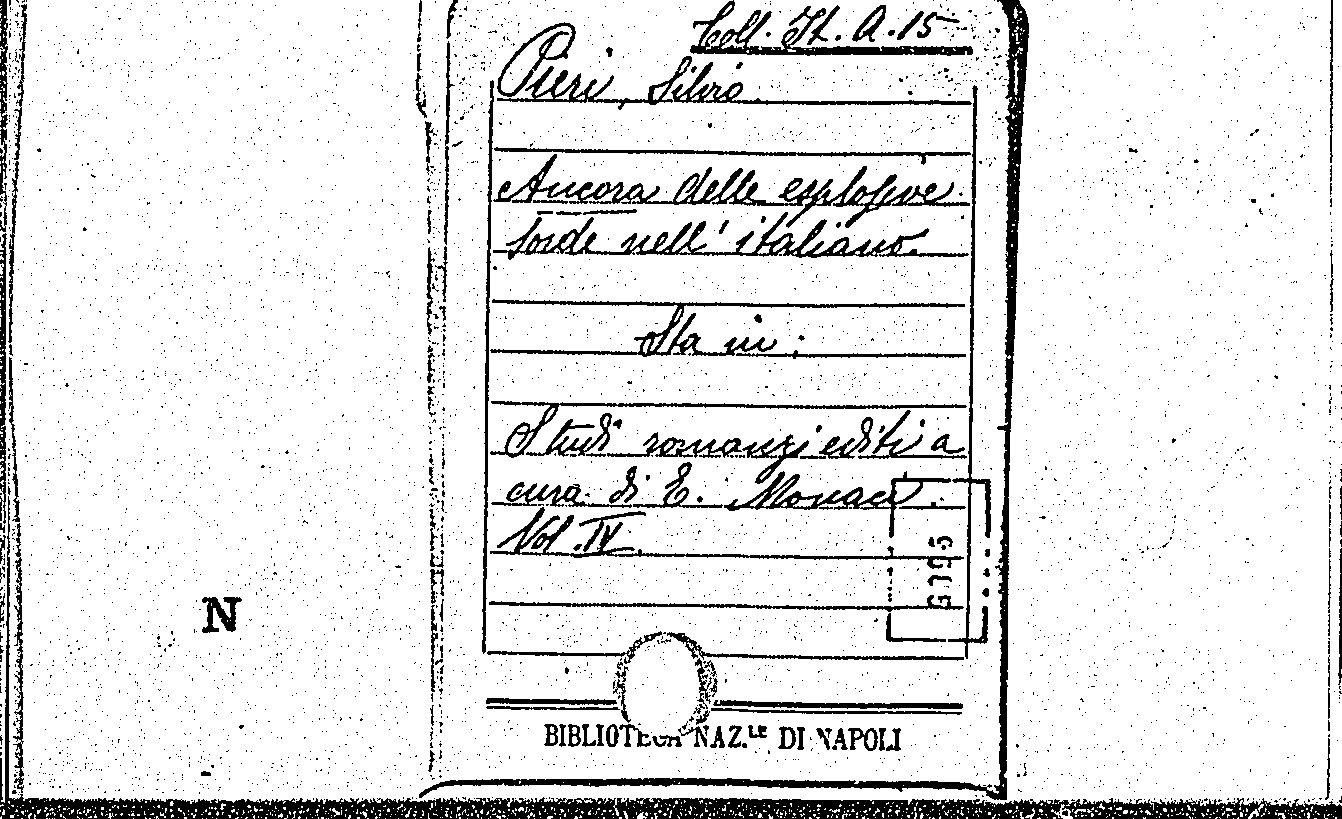 Coll. It. A. 15
Pieri, Silvio
Ancora delle esplosive
sorde nell' italiano.
Sta in:
Studi romanzi editi a
cura di E. Monaci.
Vol. IV.
N
BIBLIOTECA NAZ.LE DI NAPOLI